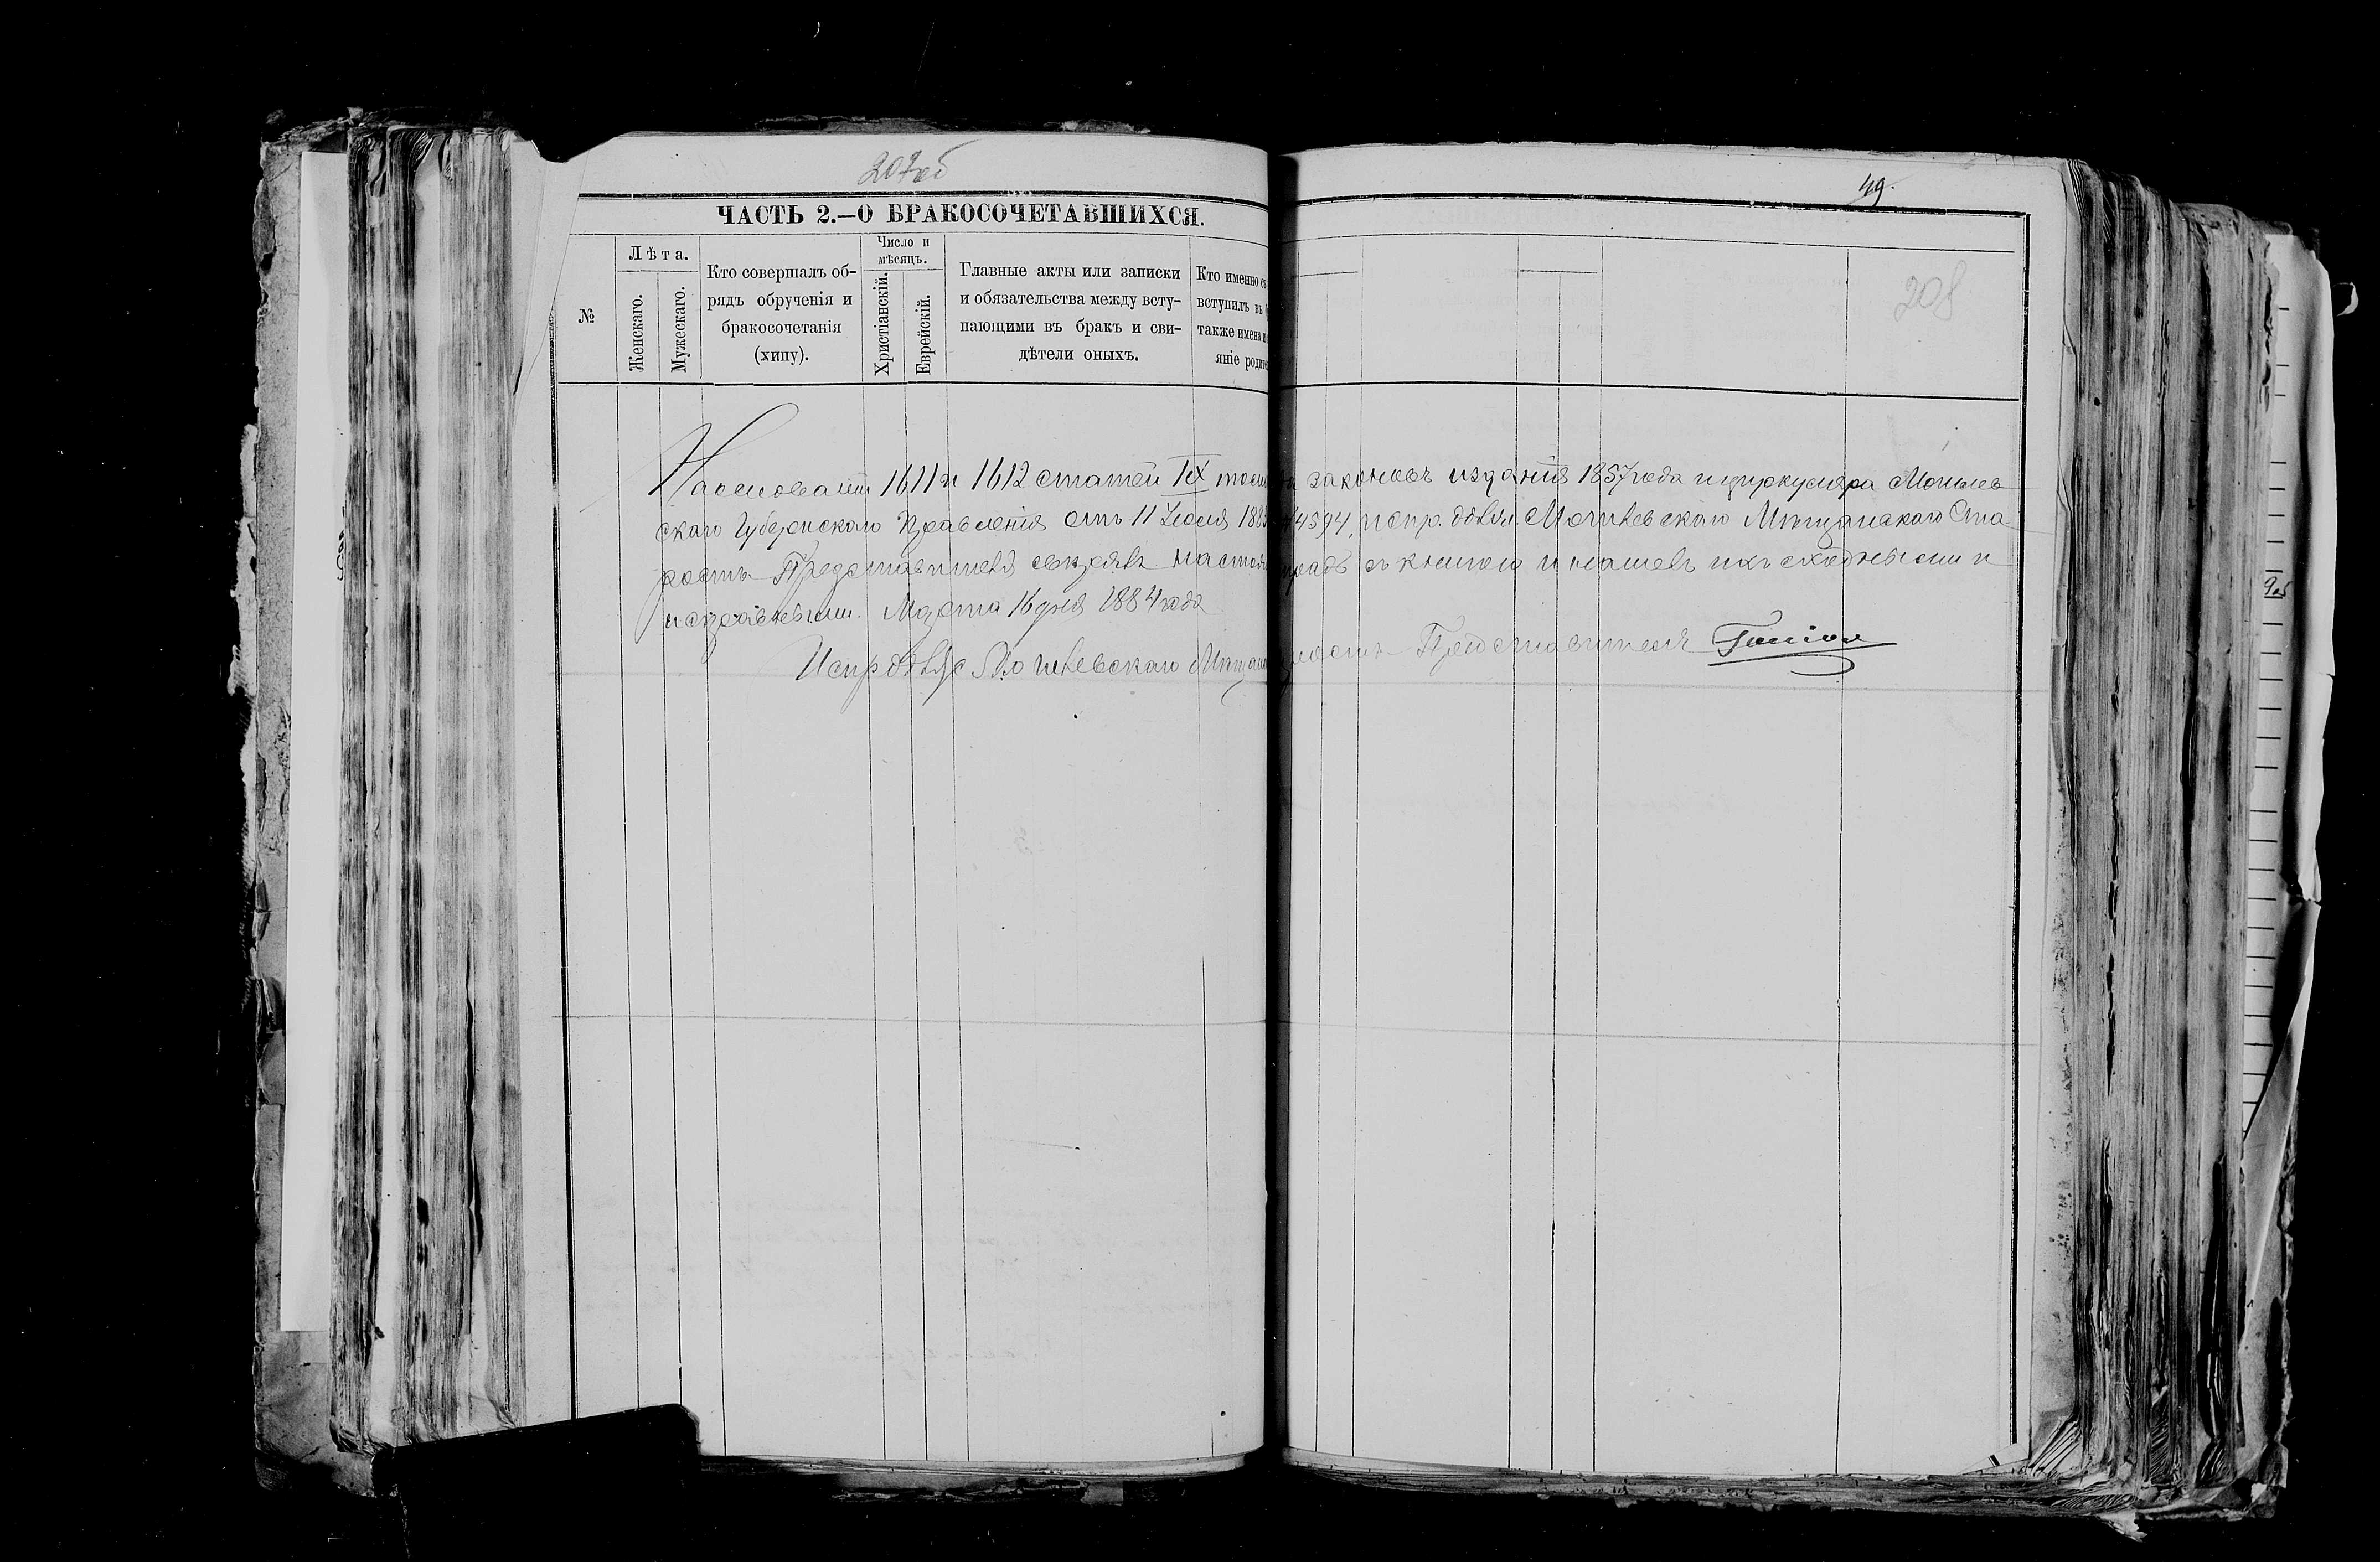 207об
49.
208
ЧАСТЬ 2.—О БРАКОСОЧЕТАВШИХСЯ.
№
Лѣта.
Женскаго.
Мужескаго.
Кто совершалъ об-
рядъ обрученія и
бракосочетанія
(хипу).
Число и
мѣсяцъ.
Христіанскій.
Еврейскій.
Главные акты или записки
и обязательства между всту-
пающими въ бракъ и сви-
дѣтели оныхъ.
Кто именно съ
вступилъ въ
также имена и
яніе родите
На основаніи 1611 и 1612 статей IX тома законовъ изданія 1857 года и циркуляра Могилев
скаго Губернскаго Правленія отъ 11 Іюля 1883 4594, испр. долж. Могилевскаго Мѣщанскаго Ста
росты книгою и нашелъ ихъ сходными и
исправными. Марта 16 дня 1884 года
Испр долж Могилевскаго